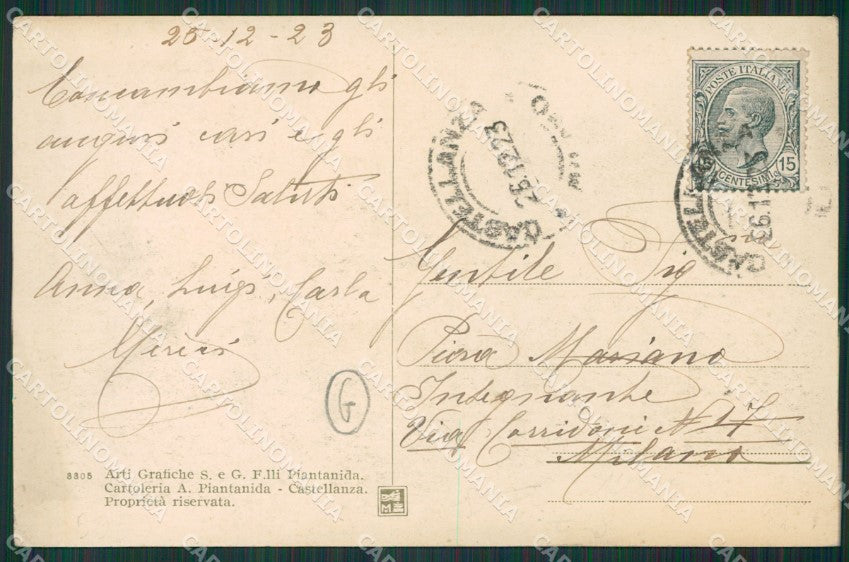 25-12-23
Concambiamo gli
auguri cari e gli
affettuosi Saluti
Anna, Luigi, Carla
POSTE ITALIANE
15
CENTESIMI
CASTELLANZA
26.12.23
MILANO
CASTELLANZA
Gentile Sig
Piera Mariano
Insegnante
Via Corridoni N 17
Milano
G
8305 Arti Grafiche S. e G. F.lli Piantanida.
Cartoleria A. Piantanida - Castellanza.
Proprietà riservata.
CARTOLINOMANIA